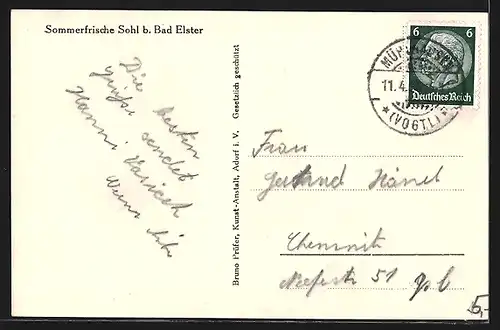 Sommerfrische Sohl b. Bad Elster
Die besten
Grüße sendet
Hanni
Bruno Prüfer, Kunst-Anstalt, Adorf i. V. Gesetzlich geschützt
6 6
Deutsches Reich
11.4.
(VOGTL)
Frau
Gertrud Hänel
Chemnitz
51
5,-